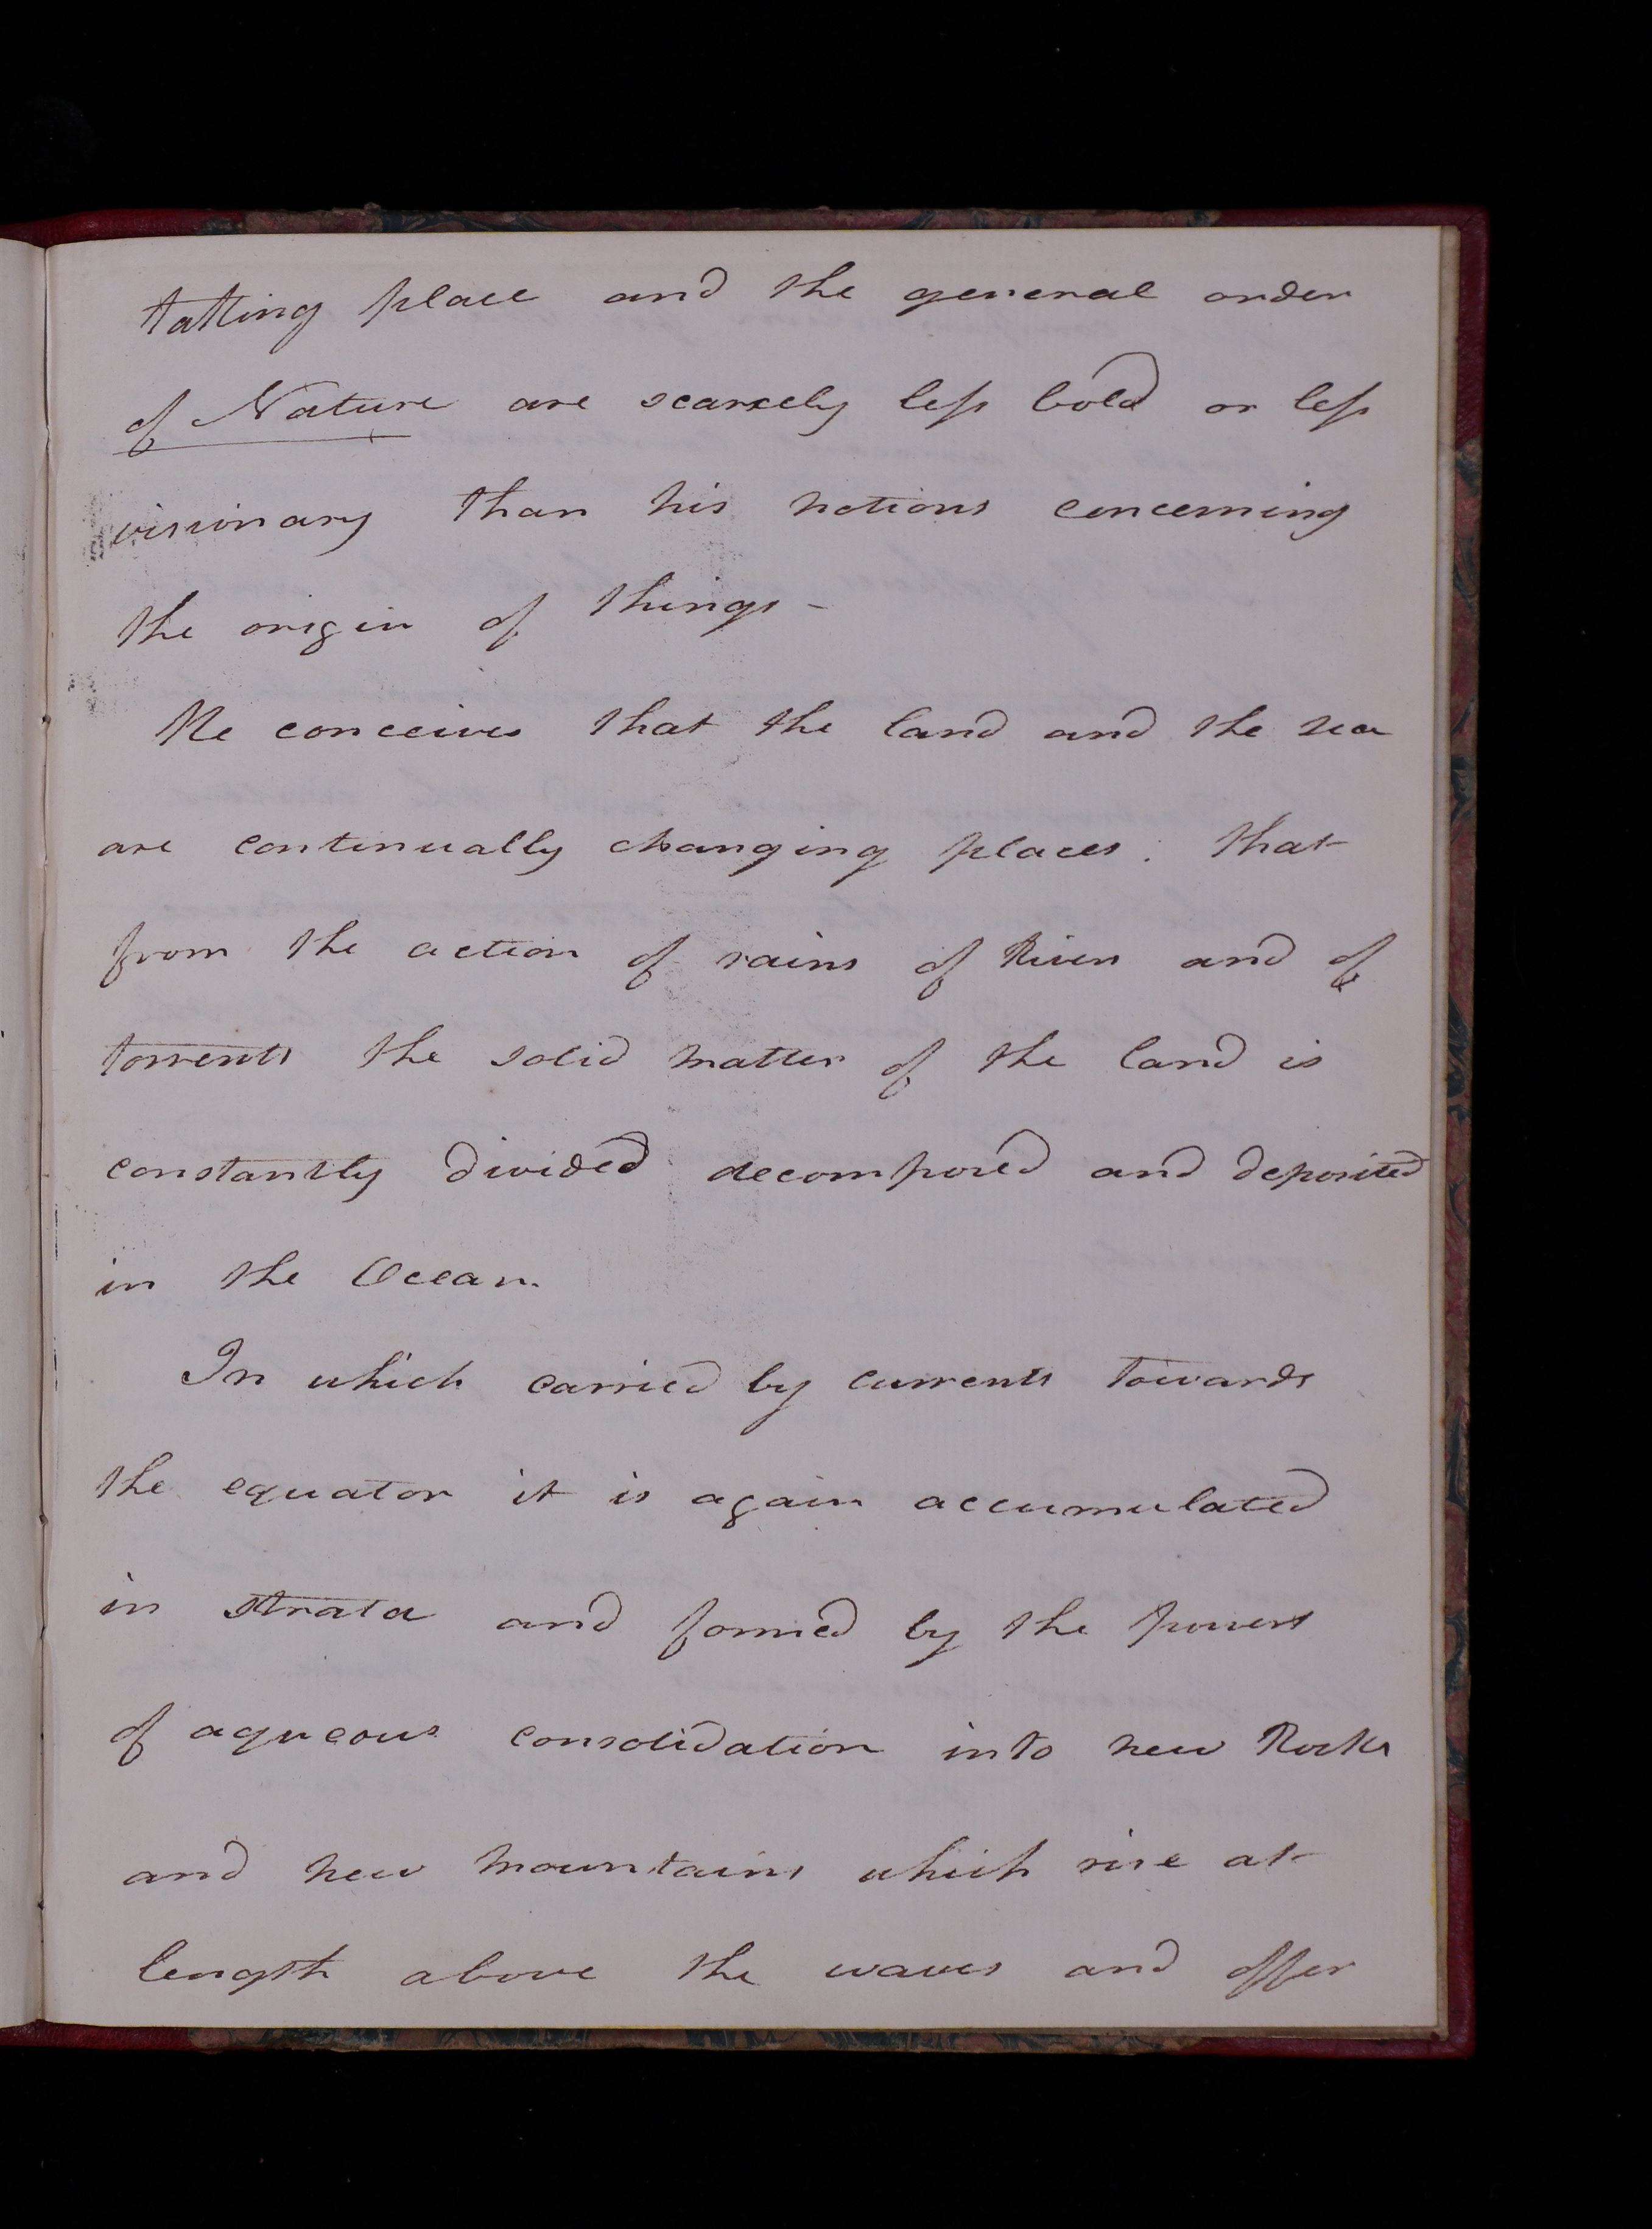 taking place and the general order
of Nature are scarcely less bold or less
visionary than his notions concerning
the origin of things -
He conceives that the land and the sea
are continually changing places. that
from the action of rains of Rivers and of
torrents the solid matter of the land is
constantly divided decomposed and deposited
in the Ocean.
In which carried by currents towards
the equator it is again accumulated
in strata and formed by the powers
of aqueous consolidation into new Rocks
and new mountains which rise at
length above the waves and offer